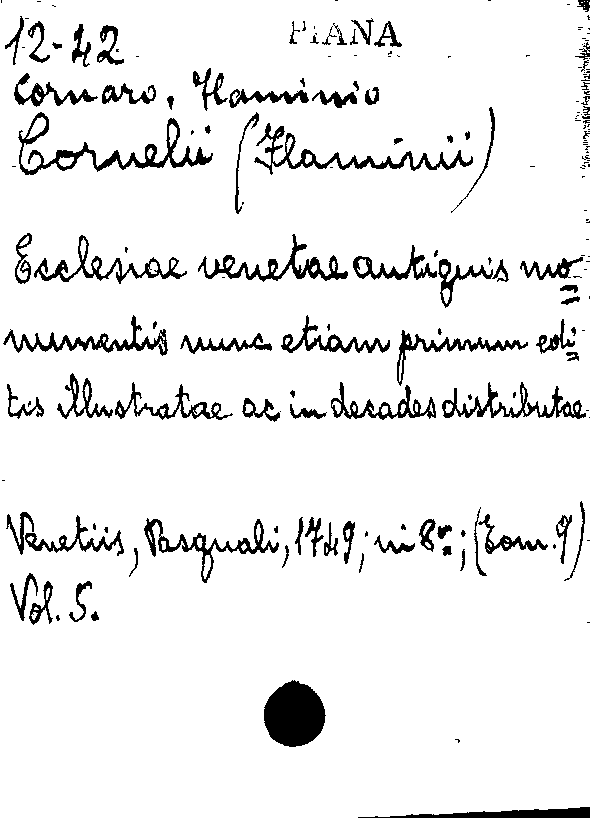 12-42 PIANA
Cornaro, Flaminio
Cornelii (Flaminii)
Ecclesiae venetae antiquis mo=
numentis nunc etiam primum edi=
tis illustratae ac in decades distributae
Venetiis, Pasquali, 1749; in 8º; (Tom. 9)
Vol. 5.